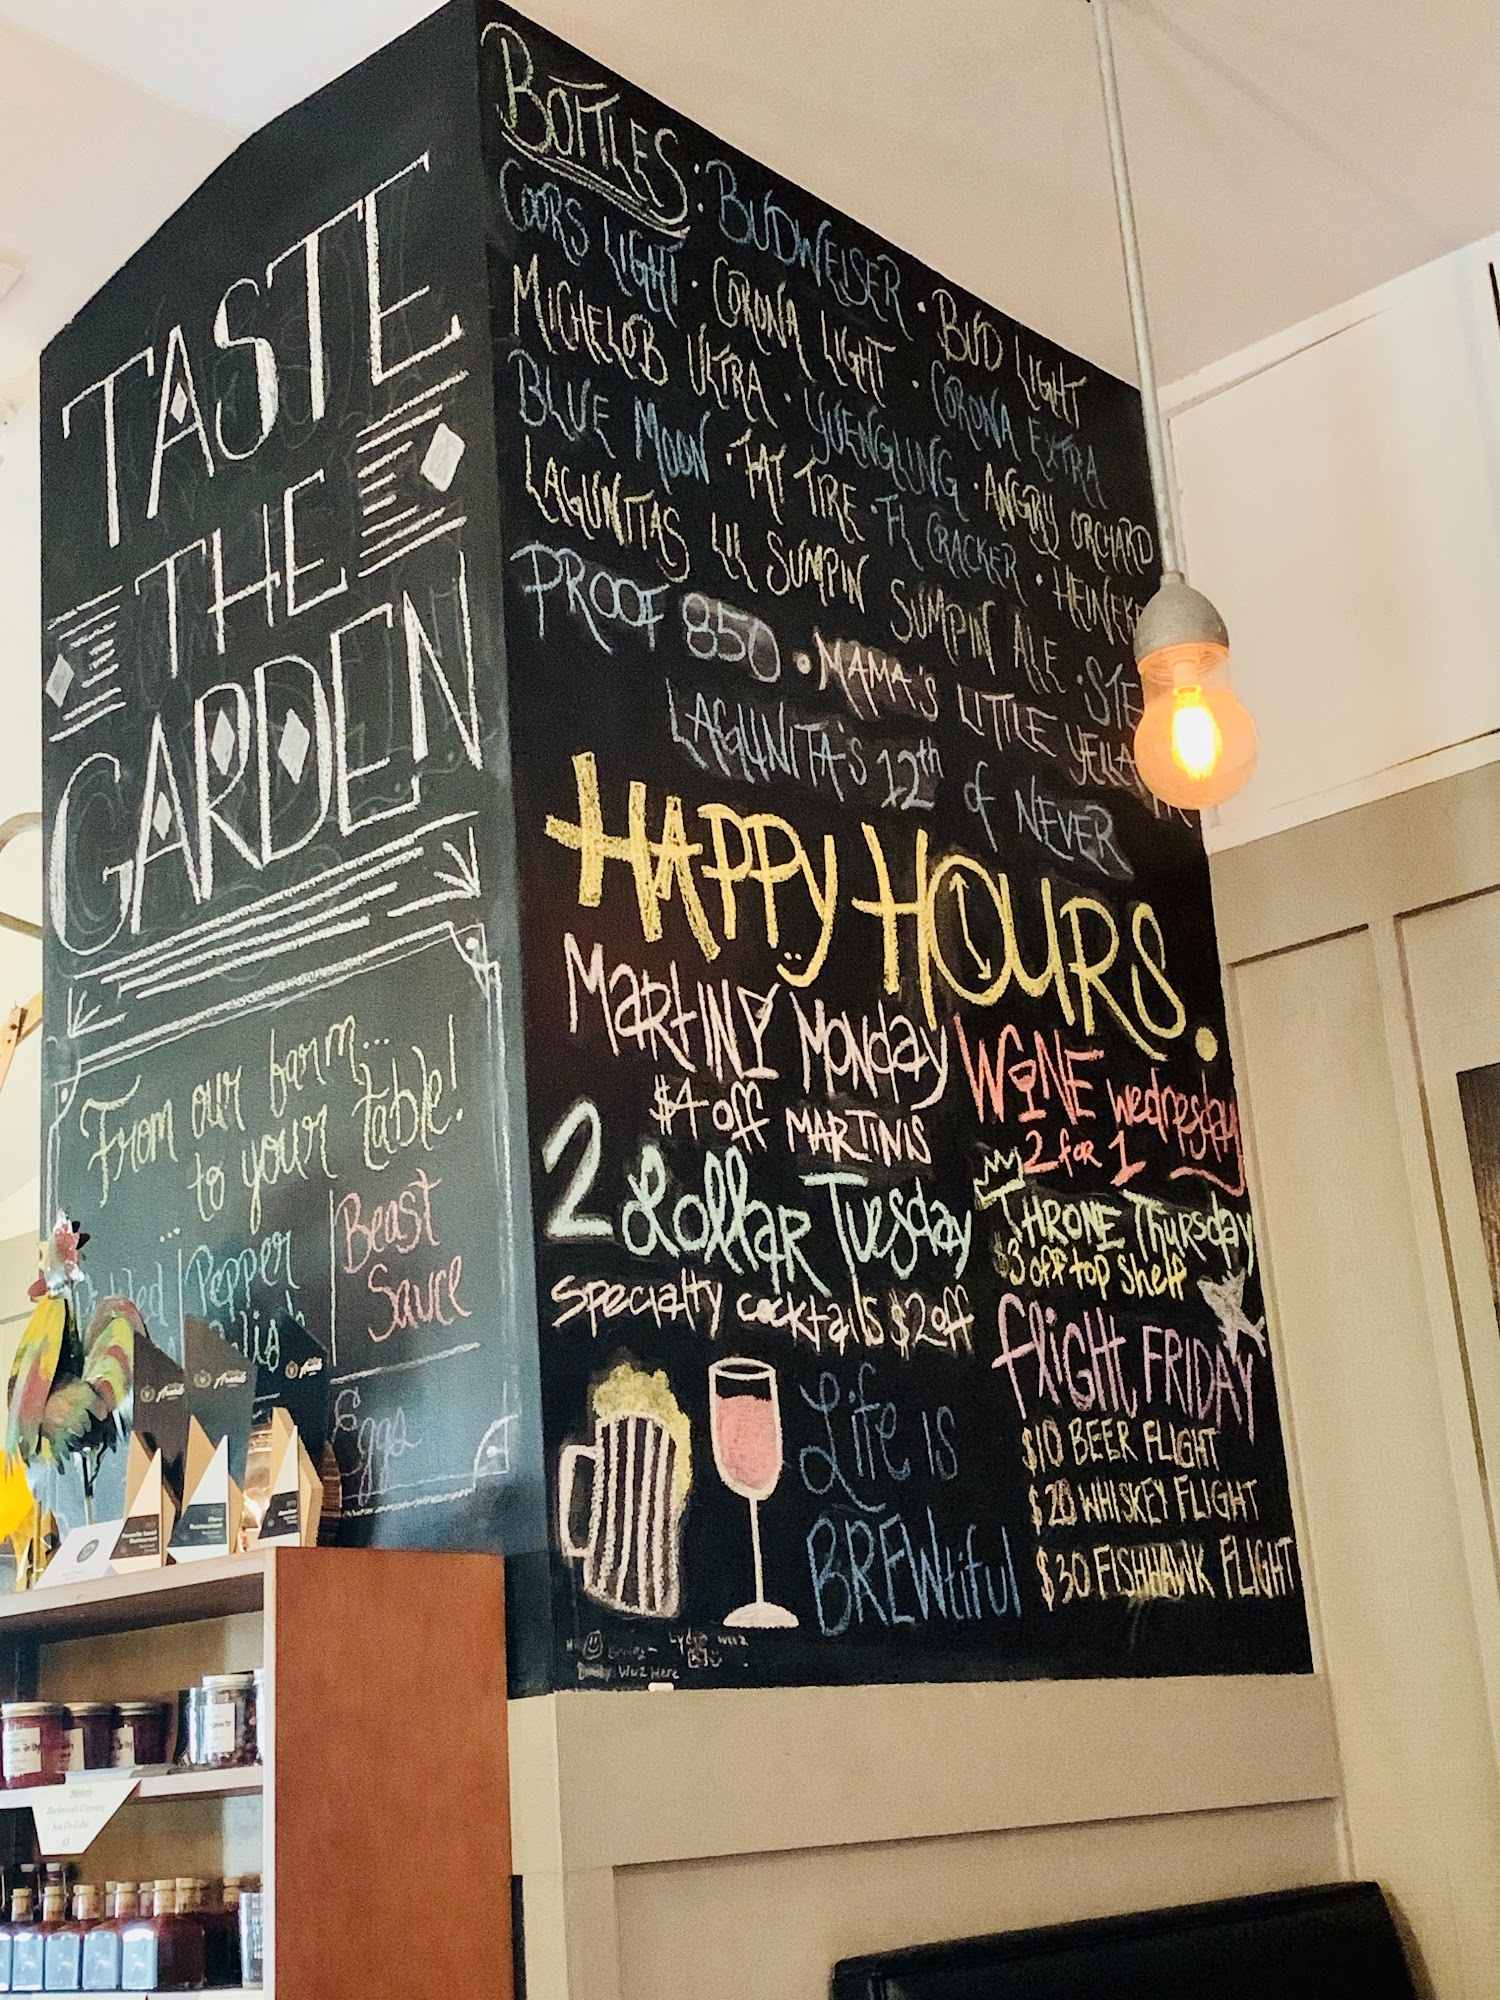 TASTE
THE
GARDEN
From our farm...
to your table!
...
Pepper
Beast
Sauce
Eggs
BOTTLES · BUDWEISER · BUD LIGHT
COORS LIGHT · CORONA LIGHT · CORONA EXTRA
MICHELOB ULTRA · YUENGLING · ANGRY ORCHARD
BLUE MOON · FAT TIRE · FL CRACKER ·
LAGUNITAS LIL SUMPIN SUMPIN ALE ·
PROOF 850 · MAMA'S LITTLE
LAGUNITA'S 12th of NEVER
HAPPY HOURS.
MARTINY MONday
$4 off MARTINIS
2 Dollar Tuesday
Specialty cocktails $2off
WINE wednesday
2 for 1
THRONE Thursday
$3 off top shelf
flight FRIDAY
$10 BEER FLIGHT
$20 WHISKEY FLIGHT
$30 FISHHAWK FLIGHT
Life is
BREWtiful
Wuz Here